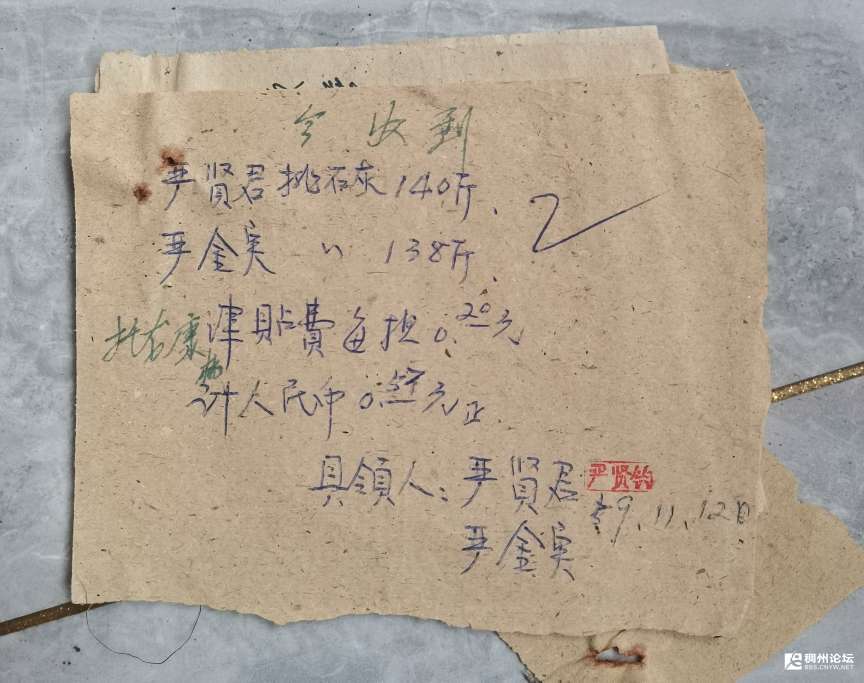 今收到
严贤君挑石灰140斤、
严金奖 〃 138斤、
津貼費每担0.20元
計人民币0.55元正
具領人：严贤君
严贤钧
59.11.12日
严金奖
稠州论坛
BBS.CNYW.NET